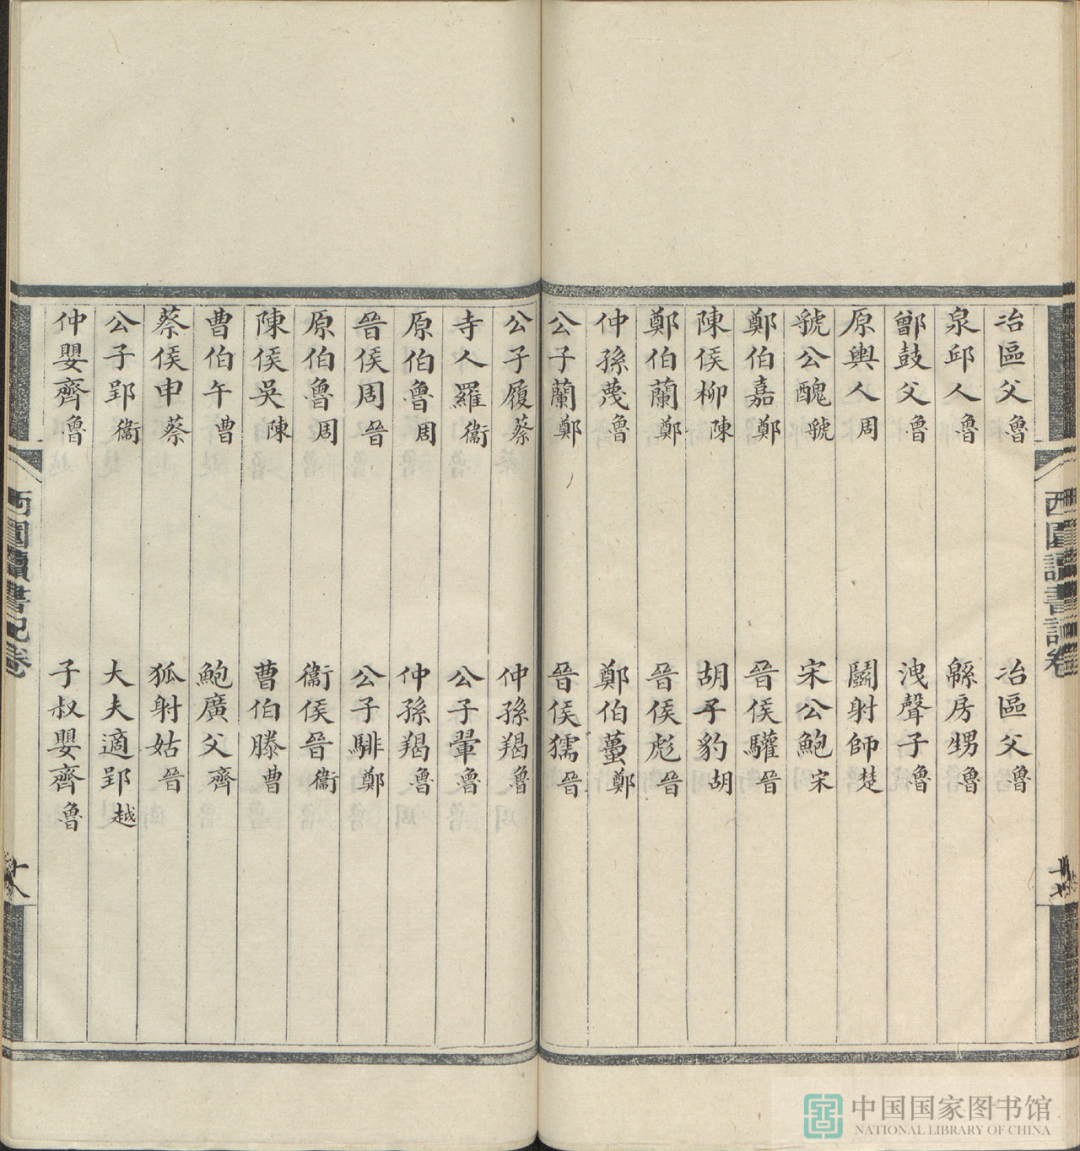 冶區父魯
冶區父魯
泉邱人魯
緜房甥魯
鄫鼓父魯
洩聲子魯
原輿人周
鬬射師楚
虢公醜虢
宋公鮑宋
鄭伯嘉鄭
晉侯驩晉
陳侯柳陳
胡子豹胡
鄭伯蘭鄭
晉侯彪晉
仲孫蔑魯
鄭伯蠆鄭
公子蘭鄭
晉侯獳晉
公子履蔡
仲孫羯魯
寺人羅衞
公子翬魯
原伯魯周
仲孫羯魯
晉侯周晉
公子騑鄭
原伯魯周
衞侯晉衞
陳侯吳陳
曹伯滕曹
曹伯午曹
鮑廣父齊
蔡侯申蔡
狐射姑晉
公子郢衞
大夫適郢越
仲嬰齊魯
子叔嬰齊魯
西圃讀書記卷
西圃讀書記卷
十八
中国国家图书馆
NATIONAL LIBRARY OF CHINA